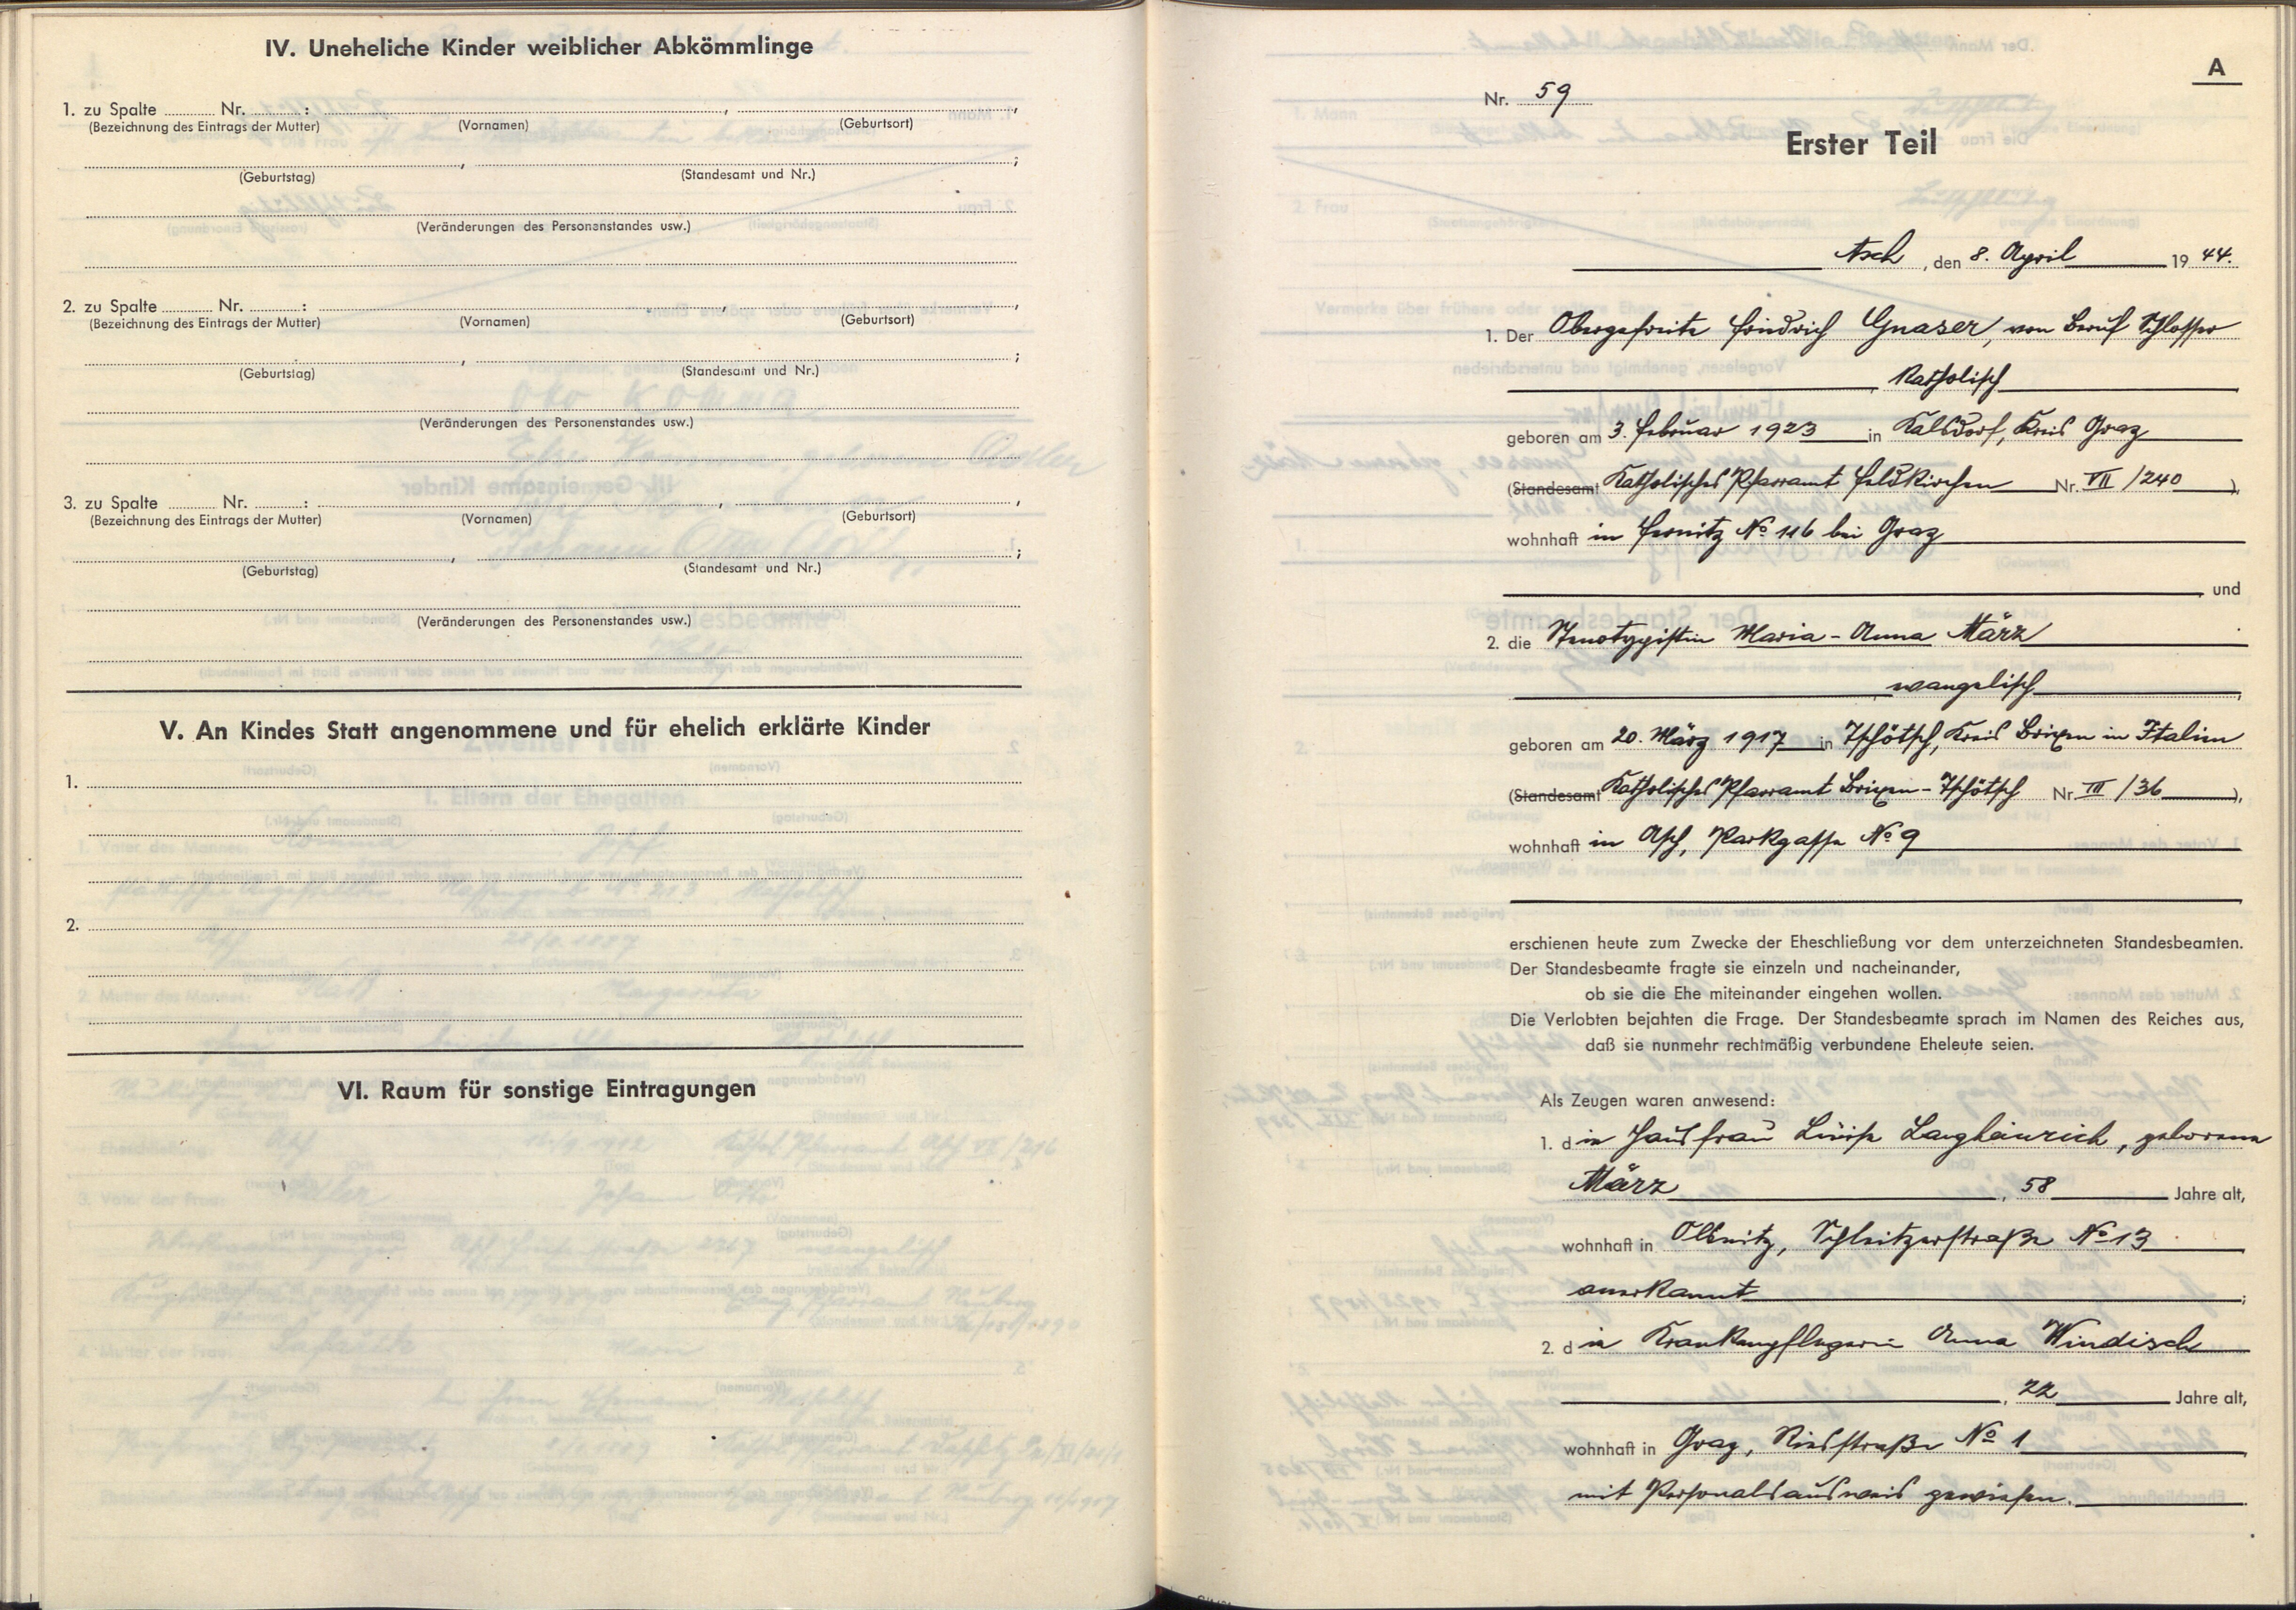 IV. Uneheliche Kinder weiblicher Abkömmlinge
1. zu Spalte Nr. : , ,
(Bezeichnung des Eintrags der Mutter) (Vornamen) (Geburtsort)
, ;
(Geburtstag) (Standesamt und Nr.)
(Veränderungen des Personenstandes usw.)
2. zu Spalte Nr. : , ,
(Bezeichnung des Eintrags der Mutter) (Vornamen) (Geburtsort)
, ;
(Geburtstag) (Standesamt und Nr.)
(Veränderungen des Personenstandes usw.)
3. zu Spalte Nr. : , ,
(Bezeichnung des Eintrags der Mutter) (Vornamen) (Geburtsort)
, ;
(Geburtstag) (Standesamt und Nr.)
(Veränderungen des Personenstandes usw.)
V. An Kindes Statt angenommene und für ehelich erklärte Kinder
1.
2.
VI. Raum für sonstige Eintragungen
A
Nr. 59
Erster Teil
Asch, den 8. April 1944.
1. Der Obergefreite Friedrich Gnaser, von Beruf Schlosser
, katholisch
geboren am 3. Februar 1923 in Kalsdorf, Kreis Graz
(Standesamt Katholisches Pfarramt Feldkirchen Nr. VII/240),
wohnhaft in Fernitz No 116 bei Graz
, und
2. die Stenotypistin Maria-Anna März
evangelisch,
geboren am 20. März 1917 in Tschötsch, Kreis Brixen in Italien
(Standesamt Katholisches Pfarramt Brixen-Tschötsch Nr. III/36),
wohnhaft in Asch, Parkgasse No 9
erschienen heute zum Zwecke der Eheschließung vor dem unterzeichneten Standesbeamten.
Der Standesbeamte fragte sie einzeln und nacheinander,
ob sie die Ehe miteinander eingehen wollen.
Die Verlobten bejahten die Frage. Der Standesbeamte sprach im Namen des Reiches aus,
daß sie nunmehr rechtmäßig verbundene Eheleute seien.
Als Zeugen waren anwesend:
1. die Hausfrau Luise Langheinrich, geborene
März, 58 Jahre alt,
wohnhaft in Ölsnitz, Schleitzerstraße No 13
anerkannt;
2. die Krankenpflegerin Anna Windisch
, 22 Jahre alt,
wohnhaft in Graz, Riesstraße No 1,
mit Personalsausweis gewiesen.